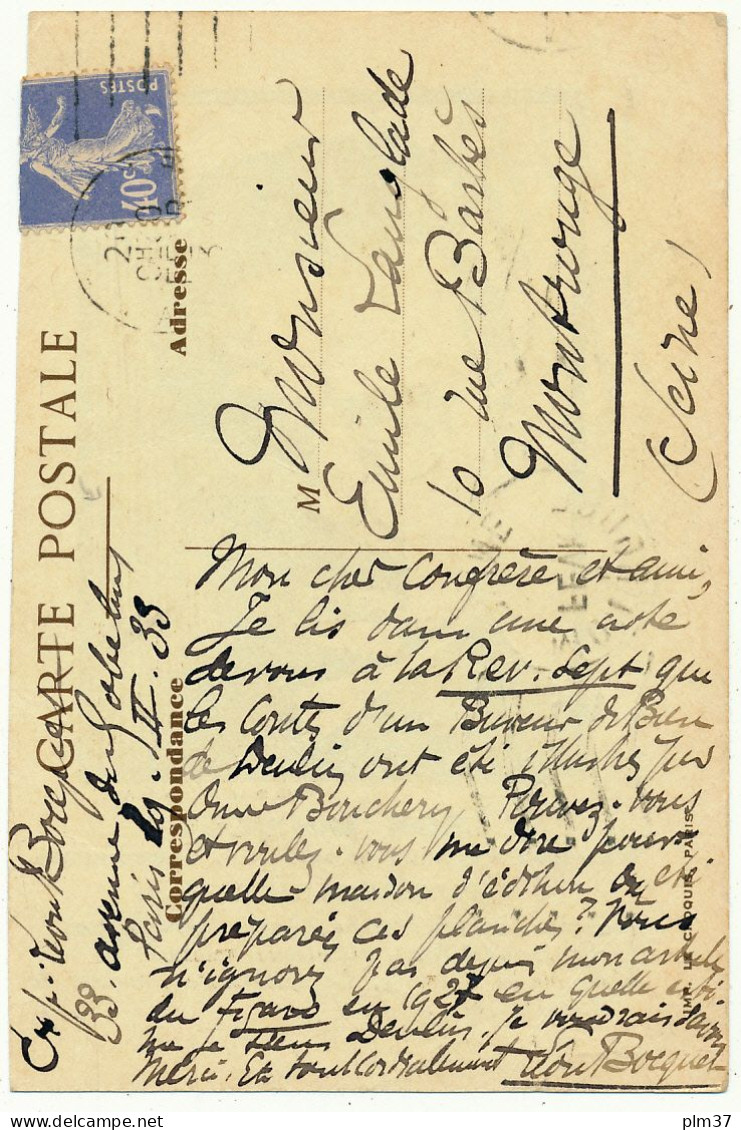 CARTE POSTALE
Correspondance
Adresse
POSTES
40c
M
Monsieur
Emile Langlade
10 rue Barbès
Montrouge
(Seine)
Exp: Léon Bocquet
33. avenue des Gobelins
Paris 19. II. 33
Mon cher Confrère et ami,
Je lis dans une note
de vous à la Rev. Sept que
les Contes d'un Buveur de Bière
de Deulin ont été illustrés par
Bouchery, Pouvez-vous
et voulez-vous me dire pour
quelle maison d'édition ont été
préparées ces planches? Vous
n'ignorez pas depuis mon article
du Figaro en 1927 en quelle estime
je tiens Deulin. Je voudrais savoir
Merci. Et tout cordialement Léon Bocquet
PARIS
plm37